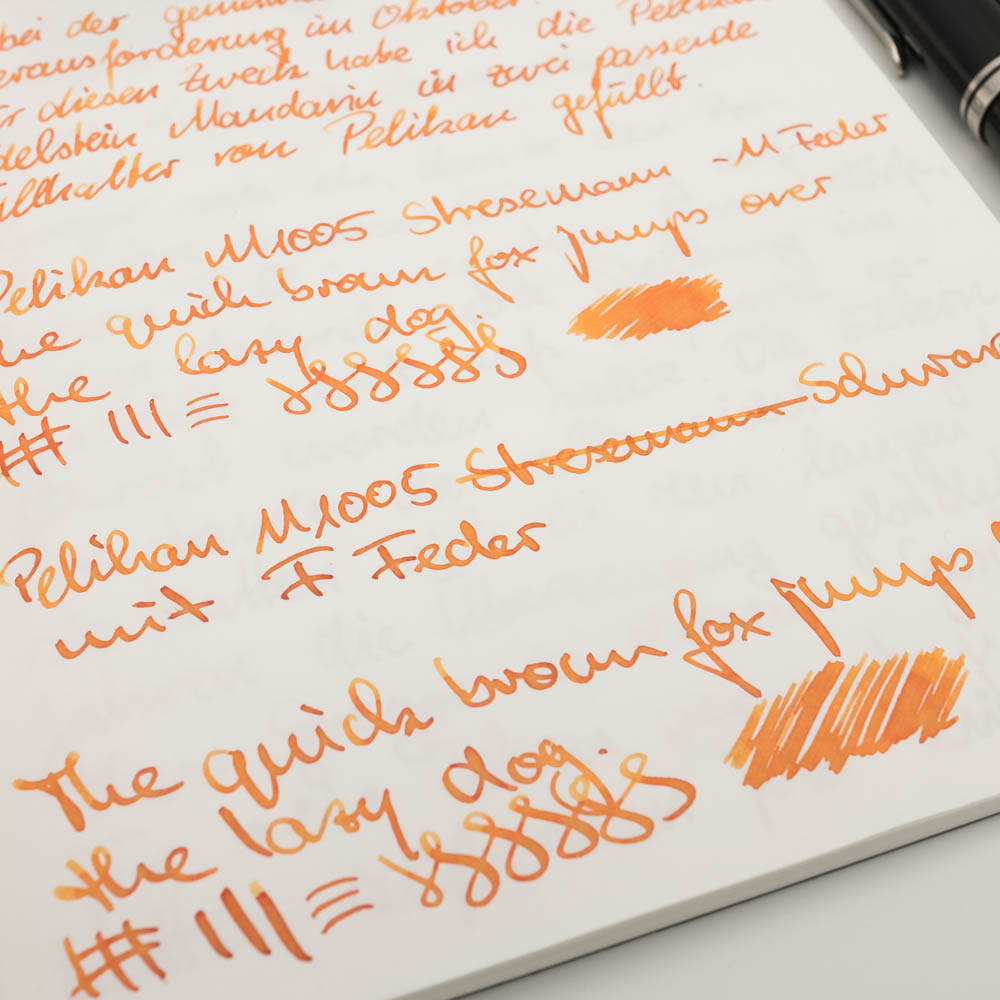 bei der gemeins
erausforderung im Oktober.
ür diesen Zweck habe ich die Pelikan
delstein Mandarin in zwei passende
üllhalter von Pelikan gefüllt.
Pelikan M1005 Stresemann - M Feder
he quick brown fox jumps over
the lazy dog.
Pelikan M1005 Stresemann Schwarz
mit F Feder
The quick brown fox jumps
the lazy dog.